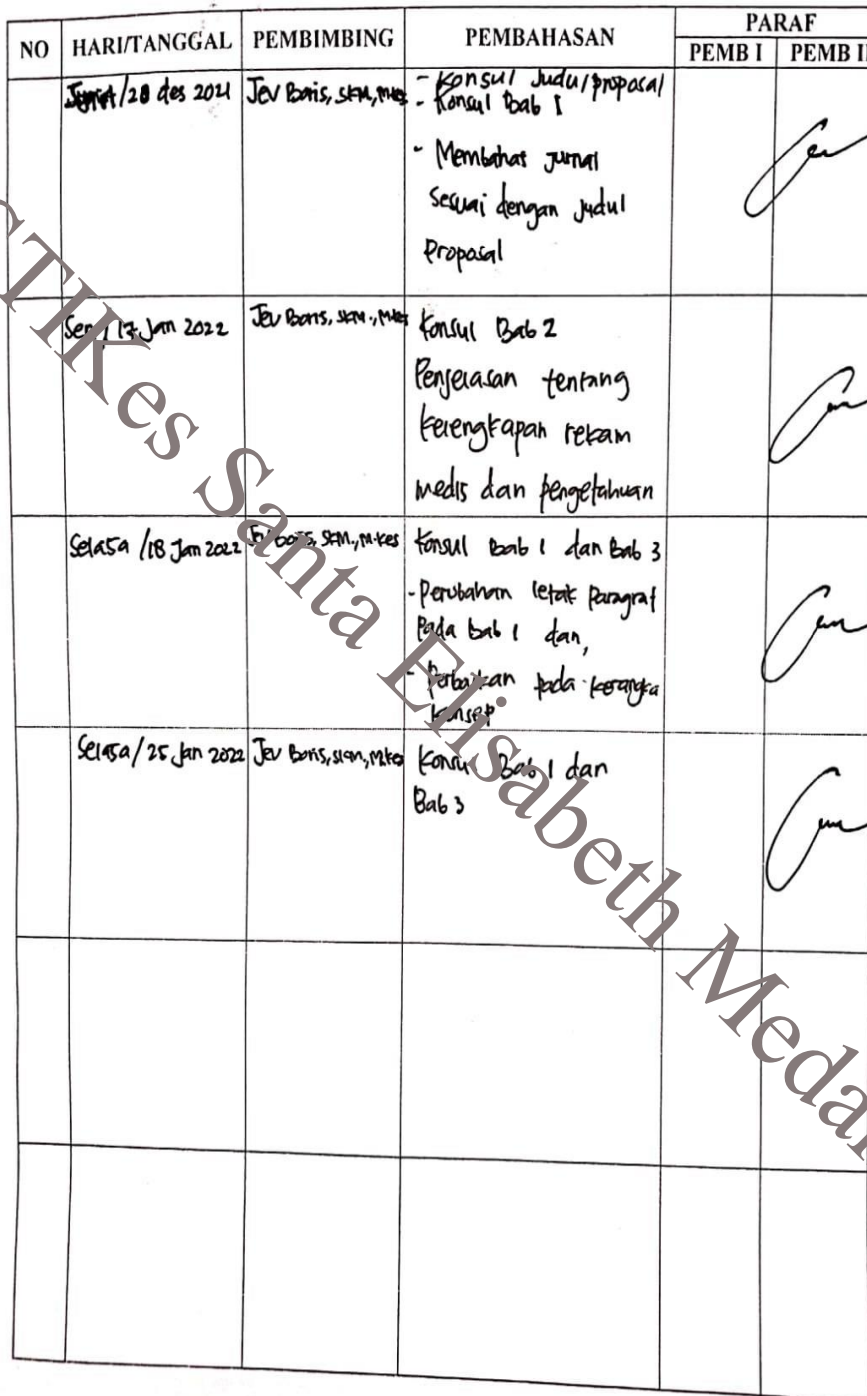 NO HARI/TANGGAL PEMBIMBING PEMBAHASAN PARAF
PEMB I PEMB II
/28 des 2021 Jev Boris, SKM, MKes - Konsul Judul/proposal
- Konsul Bab 1
- Membahas jurnal
sesuai dengan judul
proposal
17 Jan 2022 Jev Boris, SKM., MKes Konsul Bab 2
Penjelasan tentang
kelengkapan rekam
medis dan pengetahuan
Selasa /18 Jan 2022 Jev Boris, SKM., M.Kes Konsul Bab 1 dan Bab 3
- Perubahan letak Paragraf
Pada bab 1 dan,
- Perbaikan pada kerangka
konsep
Selasa/25 Jan 2022 Jev Boris, SKM, MKes Konsul Bab 1 dan
Bab 3
STIKes Santa Elisabeth Medan